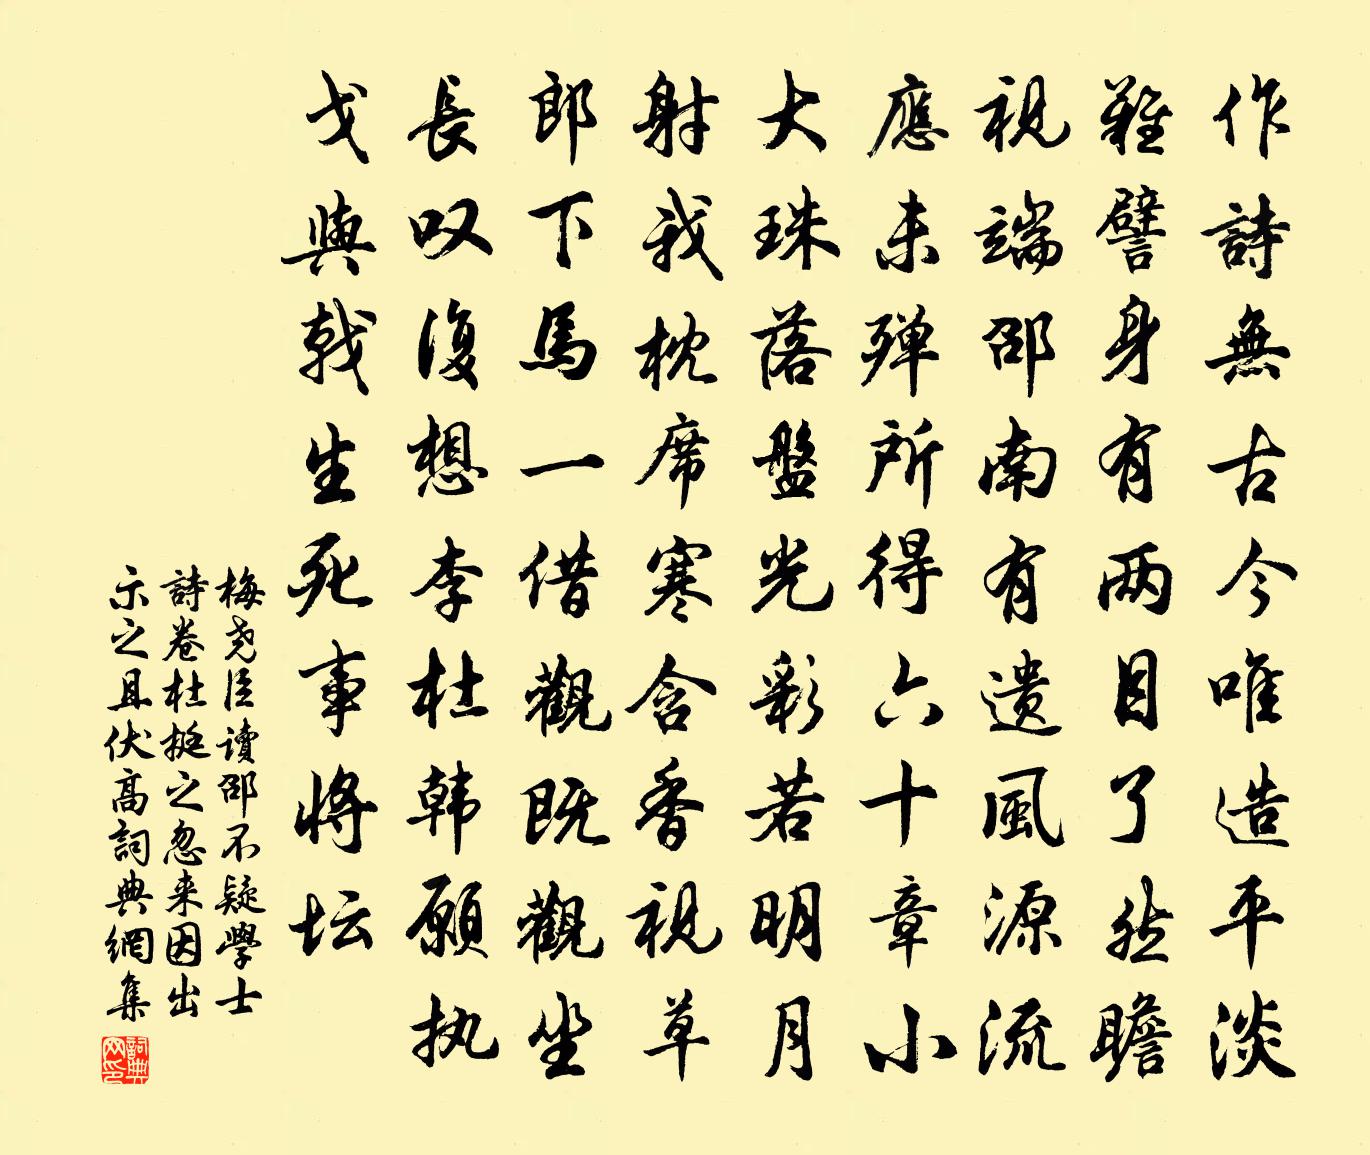 作詩無古今唯造平淡
難譬身有两目了然瞻
視端邵南有遗風源流
應未殫所得六十章小
大珠落盤光彩若明月
射我枕席寒含香視草
郎下馬一借觀既觀坐
長叹復想李杜韩願执
戈與戟生死事将坛
梅尧臣讀邵不疑學士
詩卷杜挺之忽来因出
示之且伏高詞典網集
詞典
网印